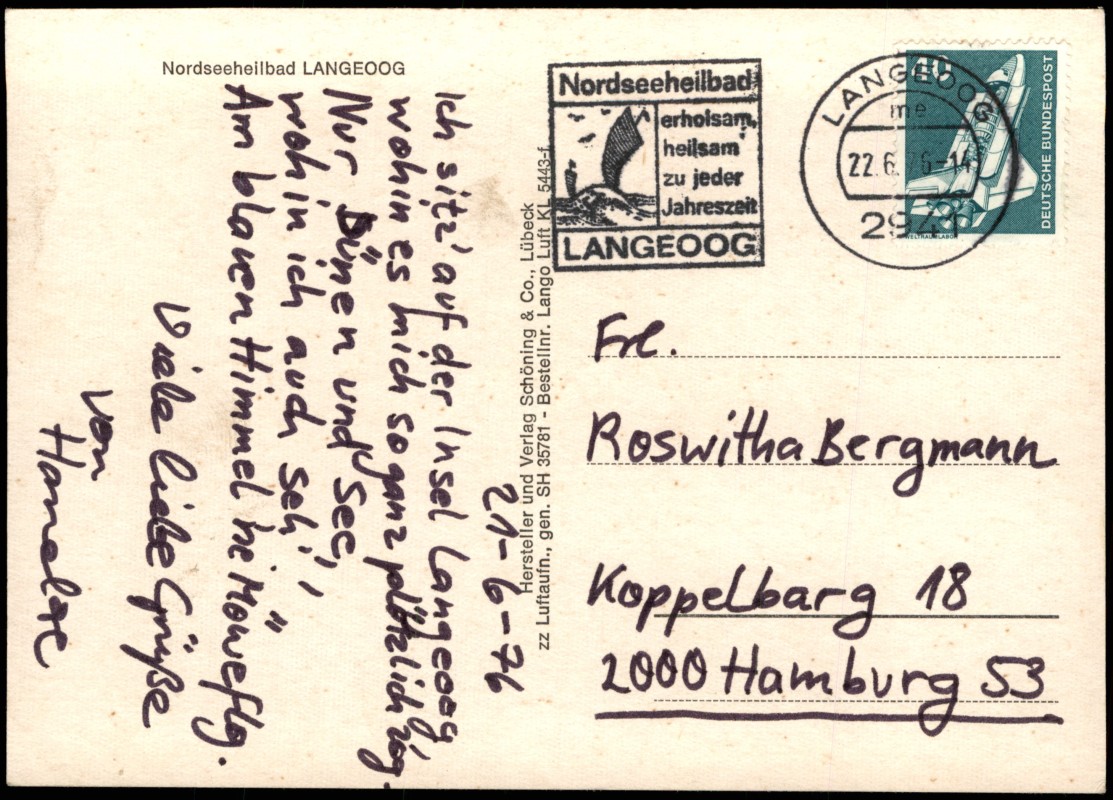 Nordseeheilbad LANGEOOG
21-6-76
Ich sitz' auf der Insel Langeoog
wohin es mich so ganz plötzlich zog.
Nur Dünen und See,
wohin ich auch seh',
Am blauen Himmel ne Möwe flog.
Viele liebe Grüße
von
Hersteller und Verlag Schöning & Co., Lübeck
zz Luftaufn., gen. SH 35781 - Bestellnr. Lango Luft KL 5443-f
Nordseeheilbad
erholsam,
heilsam
zu jeder
Jahreszeit
LANGEOOG
LANGEOOG
me
22.6.76-14
2941
40
DEUTSCHE BUNDESPOST
WELTRAUMLABOR
Frl.
Roswitha Bergmann
Koppelbarg 18
2000 Hamburg 53